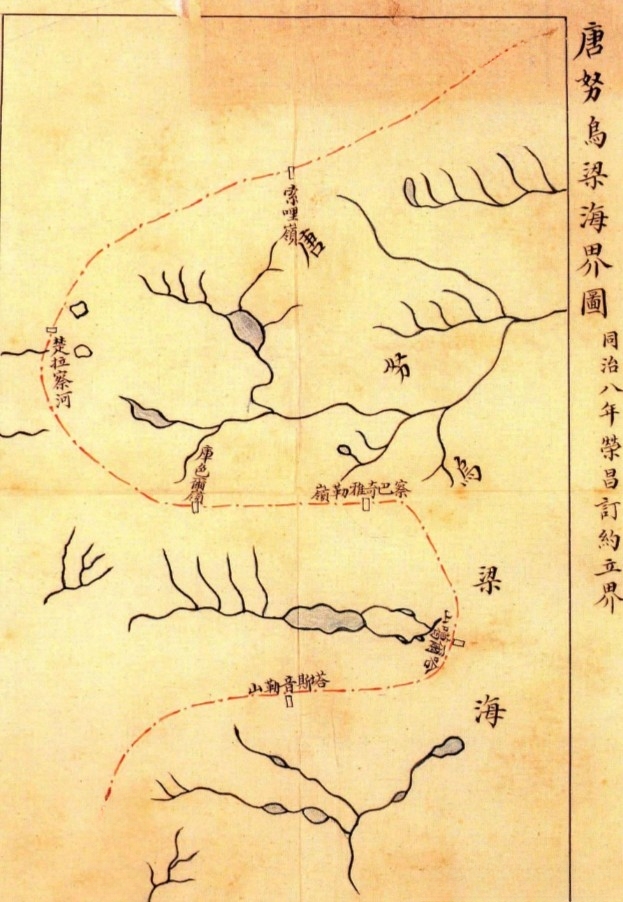 唐努烏梁海界圖
同治八年榮昌訂約立界
索哩嶺
唐
楚拉察河
努
庫色爾嶺
察巴奇雅勒嶺
烏
梁
塔斯音勒山
海